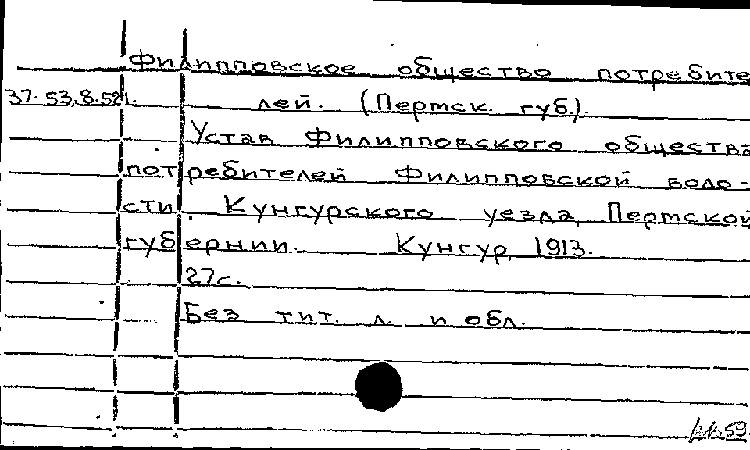 Филипповское общество потребите
37.53.8.521. лей. (Пермск. губ.)
Устав Филипповского общества
потребителей Филипповской воло-
сти, Кунгурского уезда, Пермской
губернии. Кунгур, 1913.
27с.
Без тит. л. и обл.